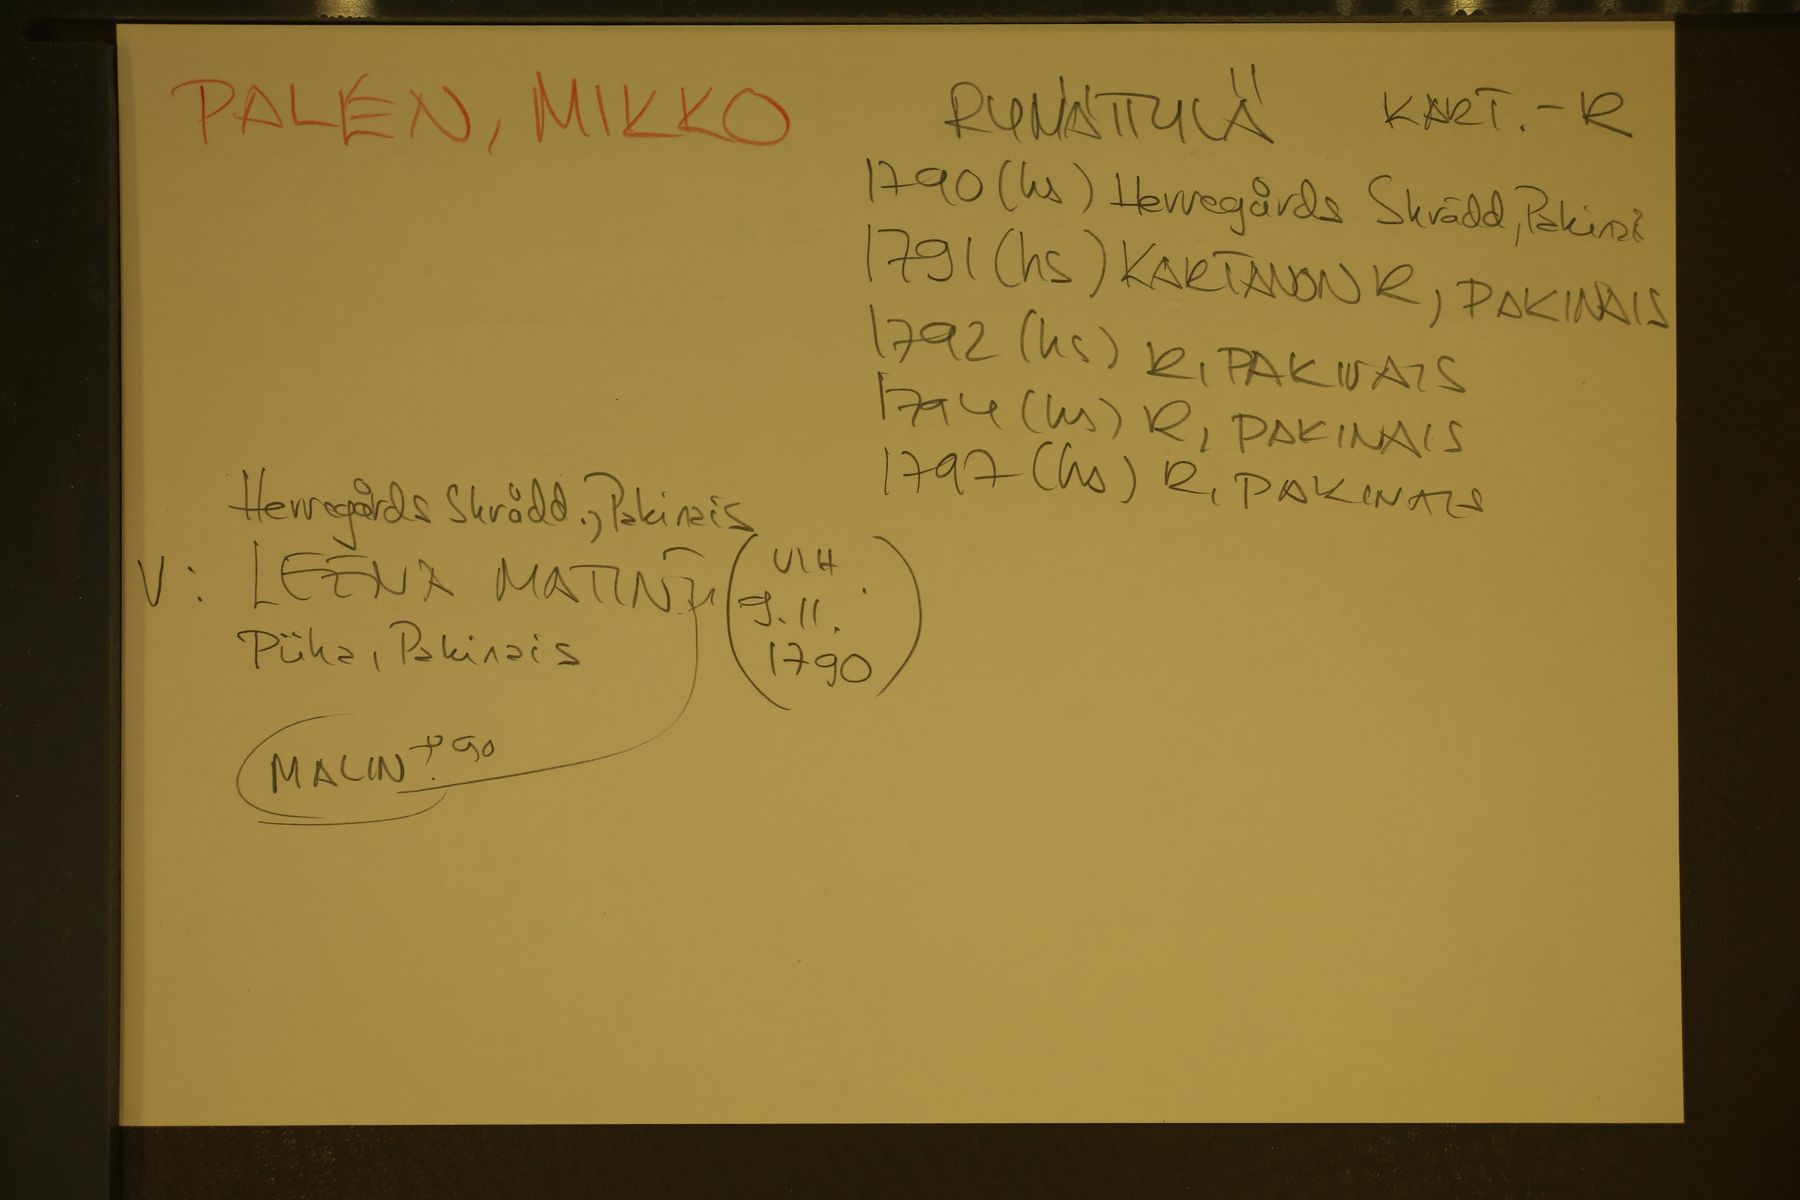 PALEN, MIKKO
RYMÄTTYLÄ KART. - R
1790 (hs) Herregårds Skrädd, Pakinai
1791 (hs) KARTANON R, PAKINAIS
1792 (hs) R, PAKINAIS
1794 (hs) R, PAKINAIS
1797 (hs) R, PAKINAIS
Herregårds Skrädd., Pakinais
V: LEENA MATINT
(VIH 9.11. 1790)
Piiha, Pakinais
MALIN 90